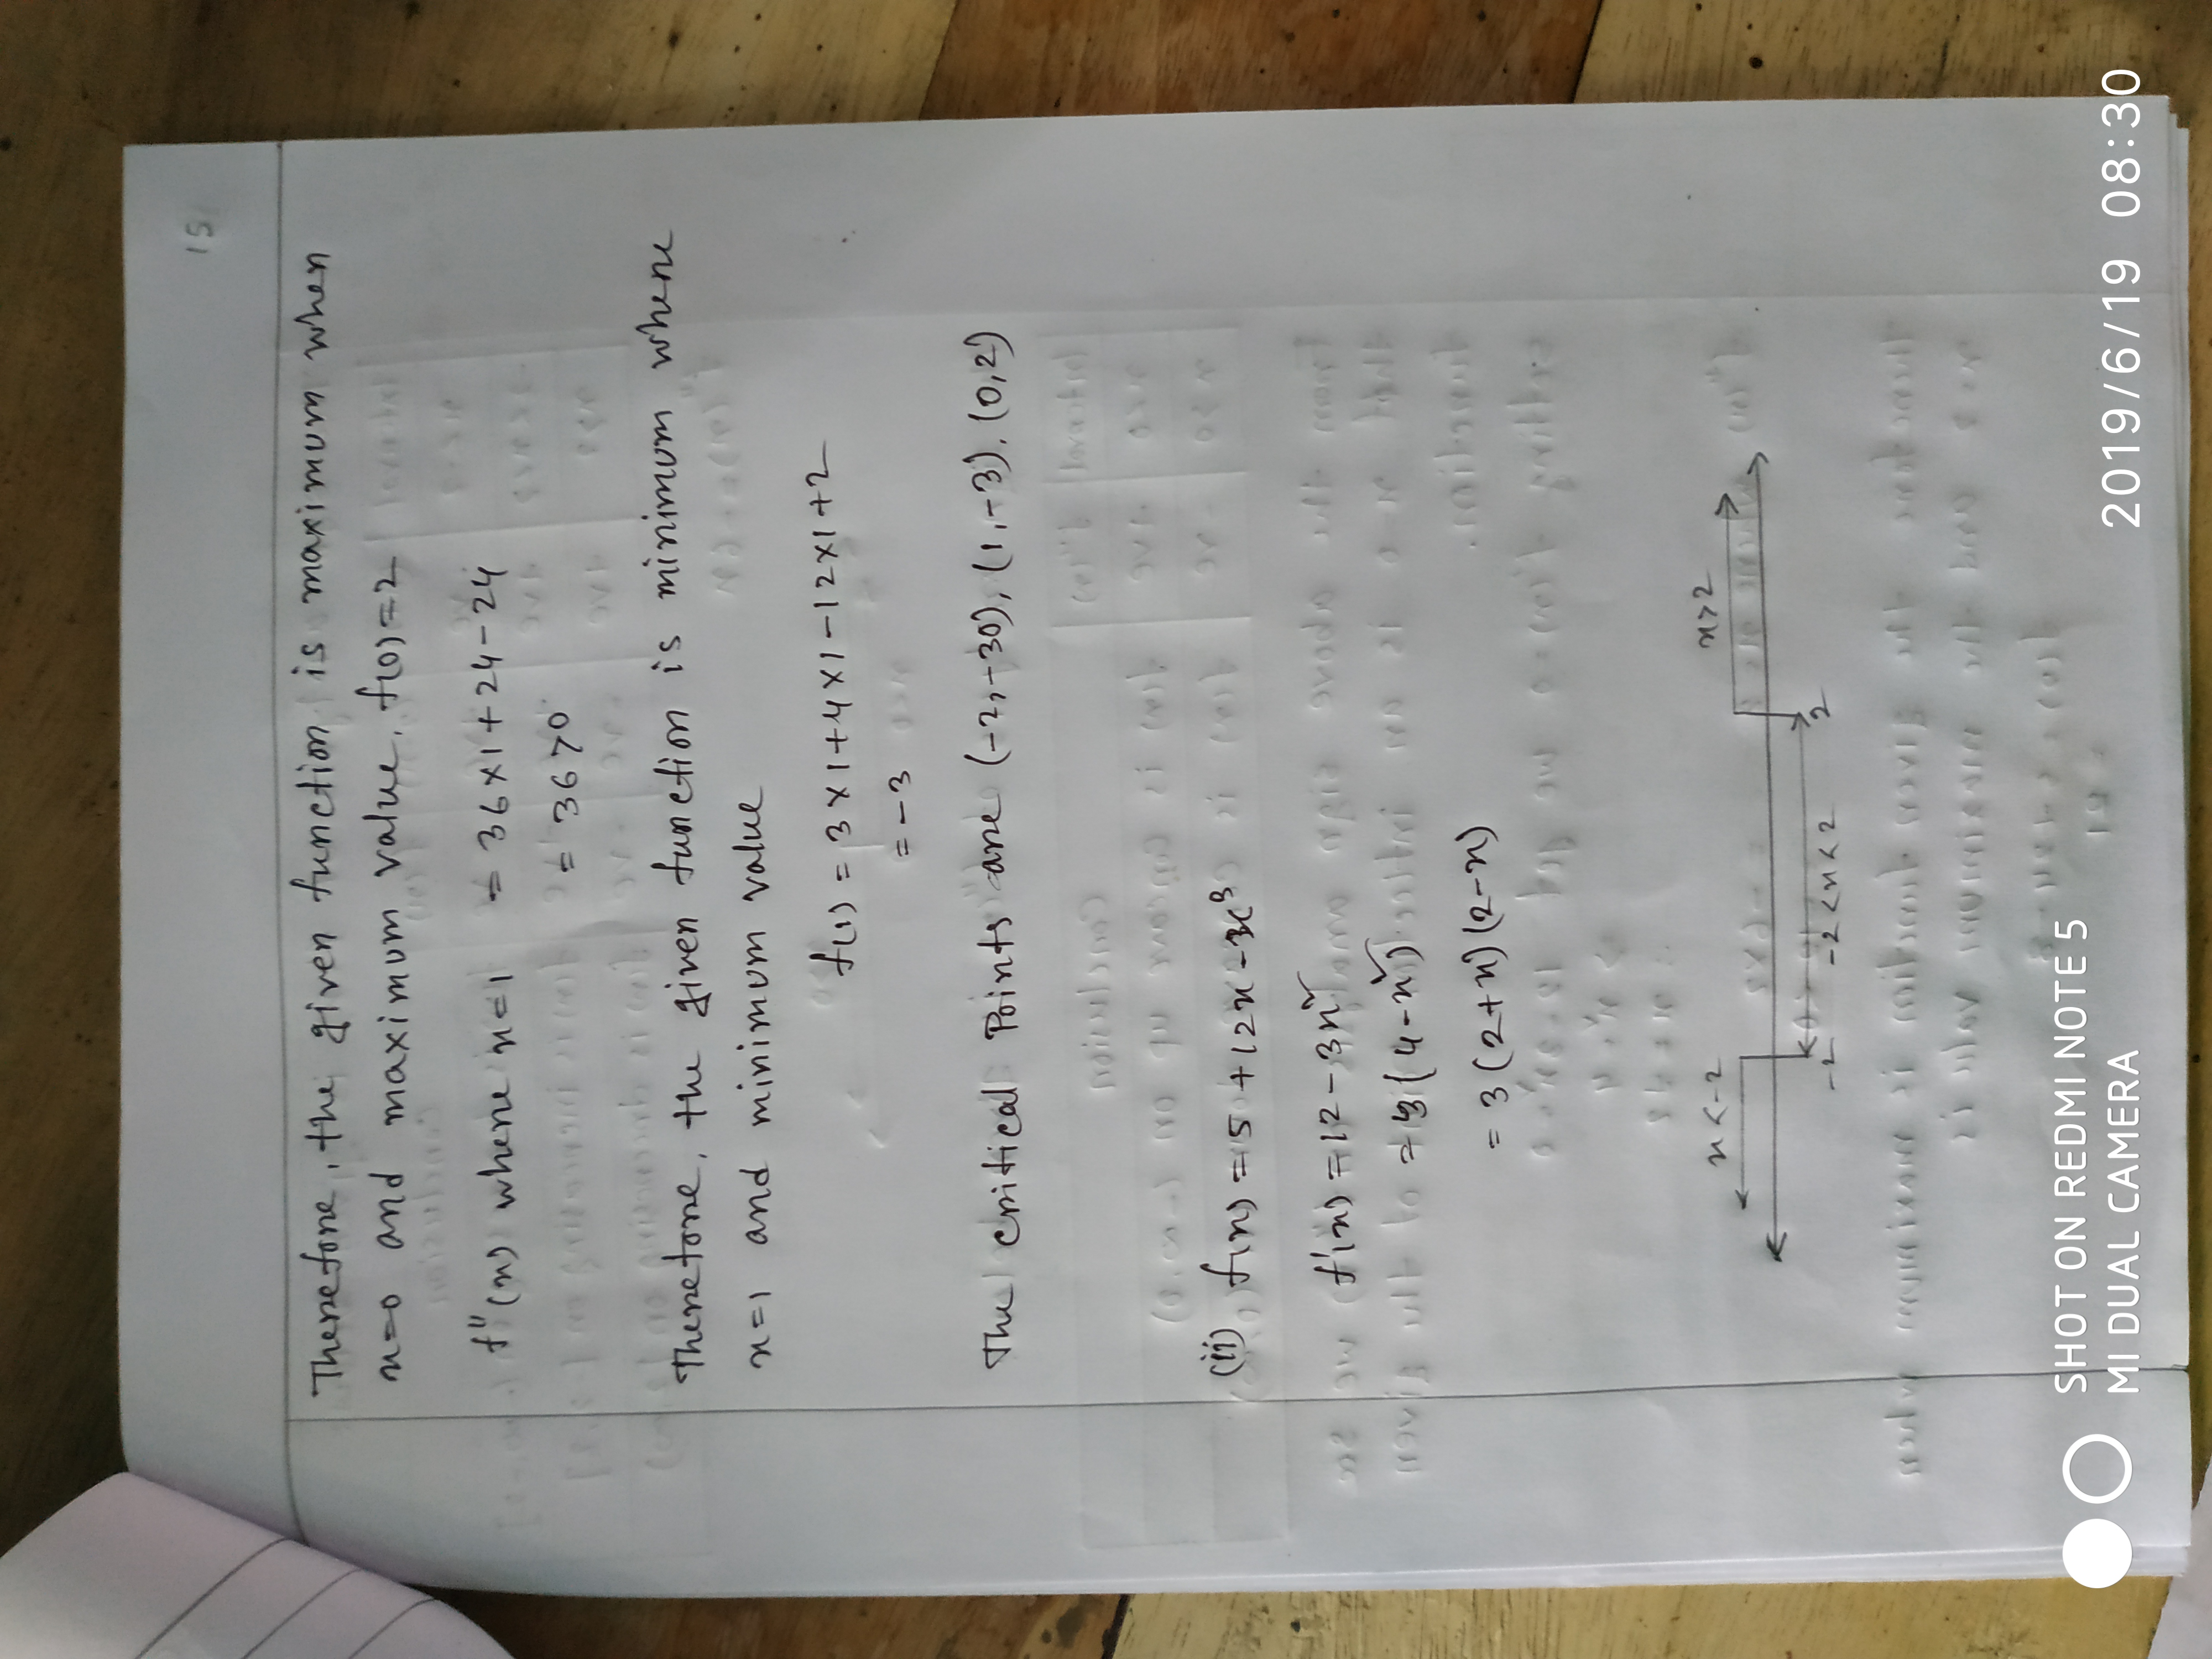 15
Therefore, the given function is maximum when
x=0 and maximum value, f(0)=2
f''(x) where x=1 = 36×1+24-24
= 36>0
Therefore, the given function is minimum where
x=1 and minimum value
f(1) = 3×1+4×1-12×1+2
= -3
The critical Points are (-2,-30), (1,-3), (0,2)
(ii) f(x) = 5+12x-x³
f'(x) = 12-3x²
= 3(4-x²)
= 3(2+x)(2-x)
x<-2 x>2
-2 -2<x<2 2
SHOT ON REDMI NOTE 5
MI DUAL CAMERA
2019/6/19 08:30